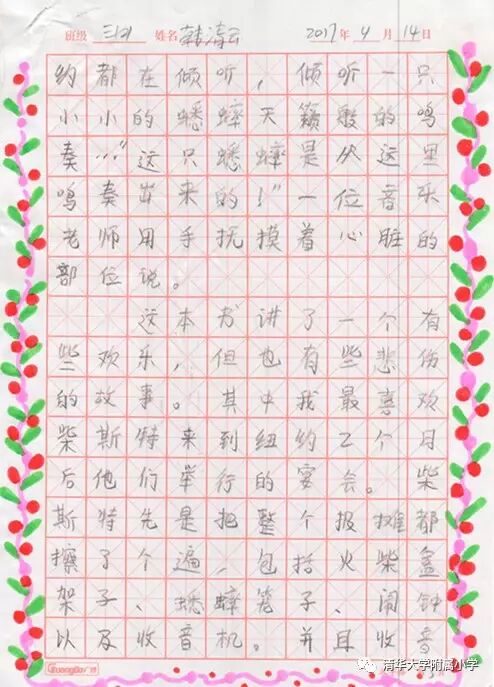 班级 三(2) 姓名 韩清云 2017年4月14日
约都在倾听，倾听一只
小小的蟋蟀天籁般的鸣
奏…”这只蟋蟀是从这里
鸣奏出来的！”一位音乐
老师用手抚摸着心脏的
部位说。
这本书讲了一个有
些欢乐，但也有些悲伤
的故事。其中我最喜欢
柴斯特来到纽约2个月
后他们举行的宴会。柴
斯特先是把整个报摊都
擦了个遍，包括火柴盒
架子、蟋蟀笼子、闹钟
以及收音机。并且收音
GuangBo
清华大学附属小学